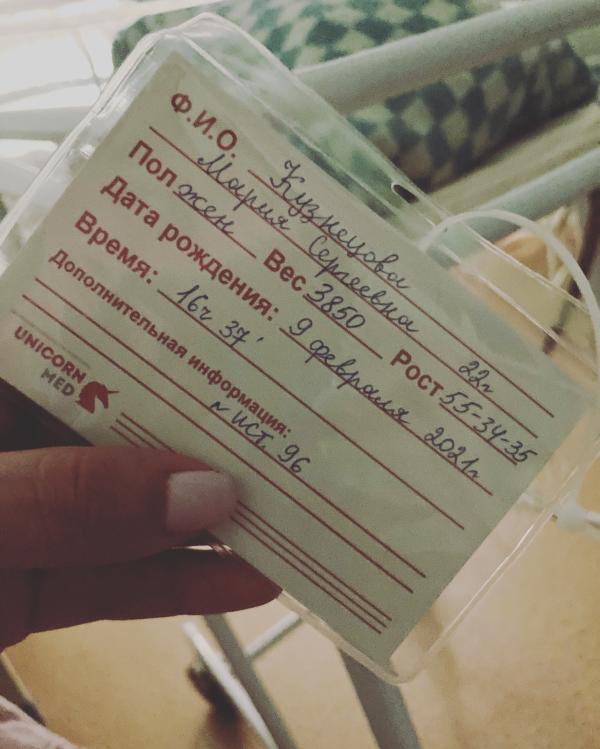 Ф.И.О. Кузнецова
Мария Сергеевна 22г
Пол жен Вес 3850 Рост 55-34-35
Дата рождения: 9 февраля 2021г
Время: 16ч 37'
Дополнительная информация:
№ ИСТ. 96
UNICORN
MED